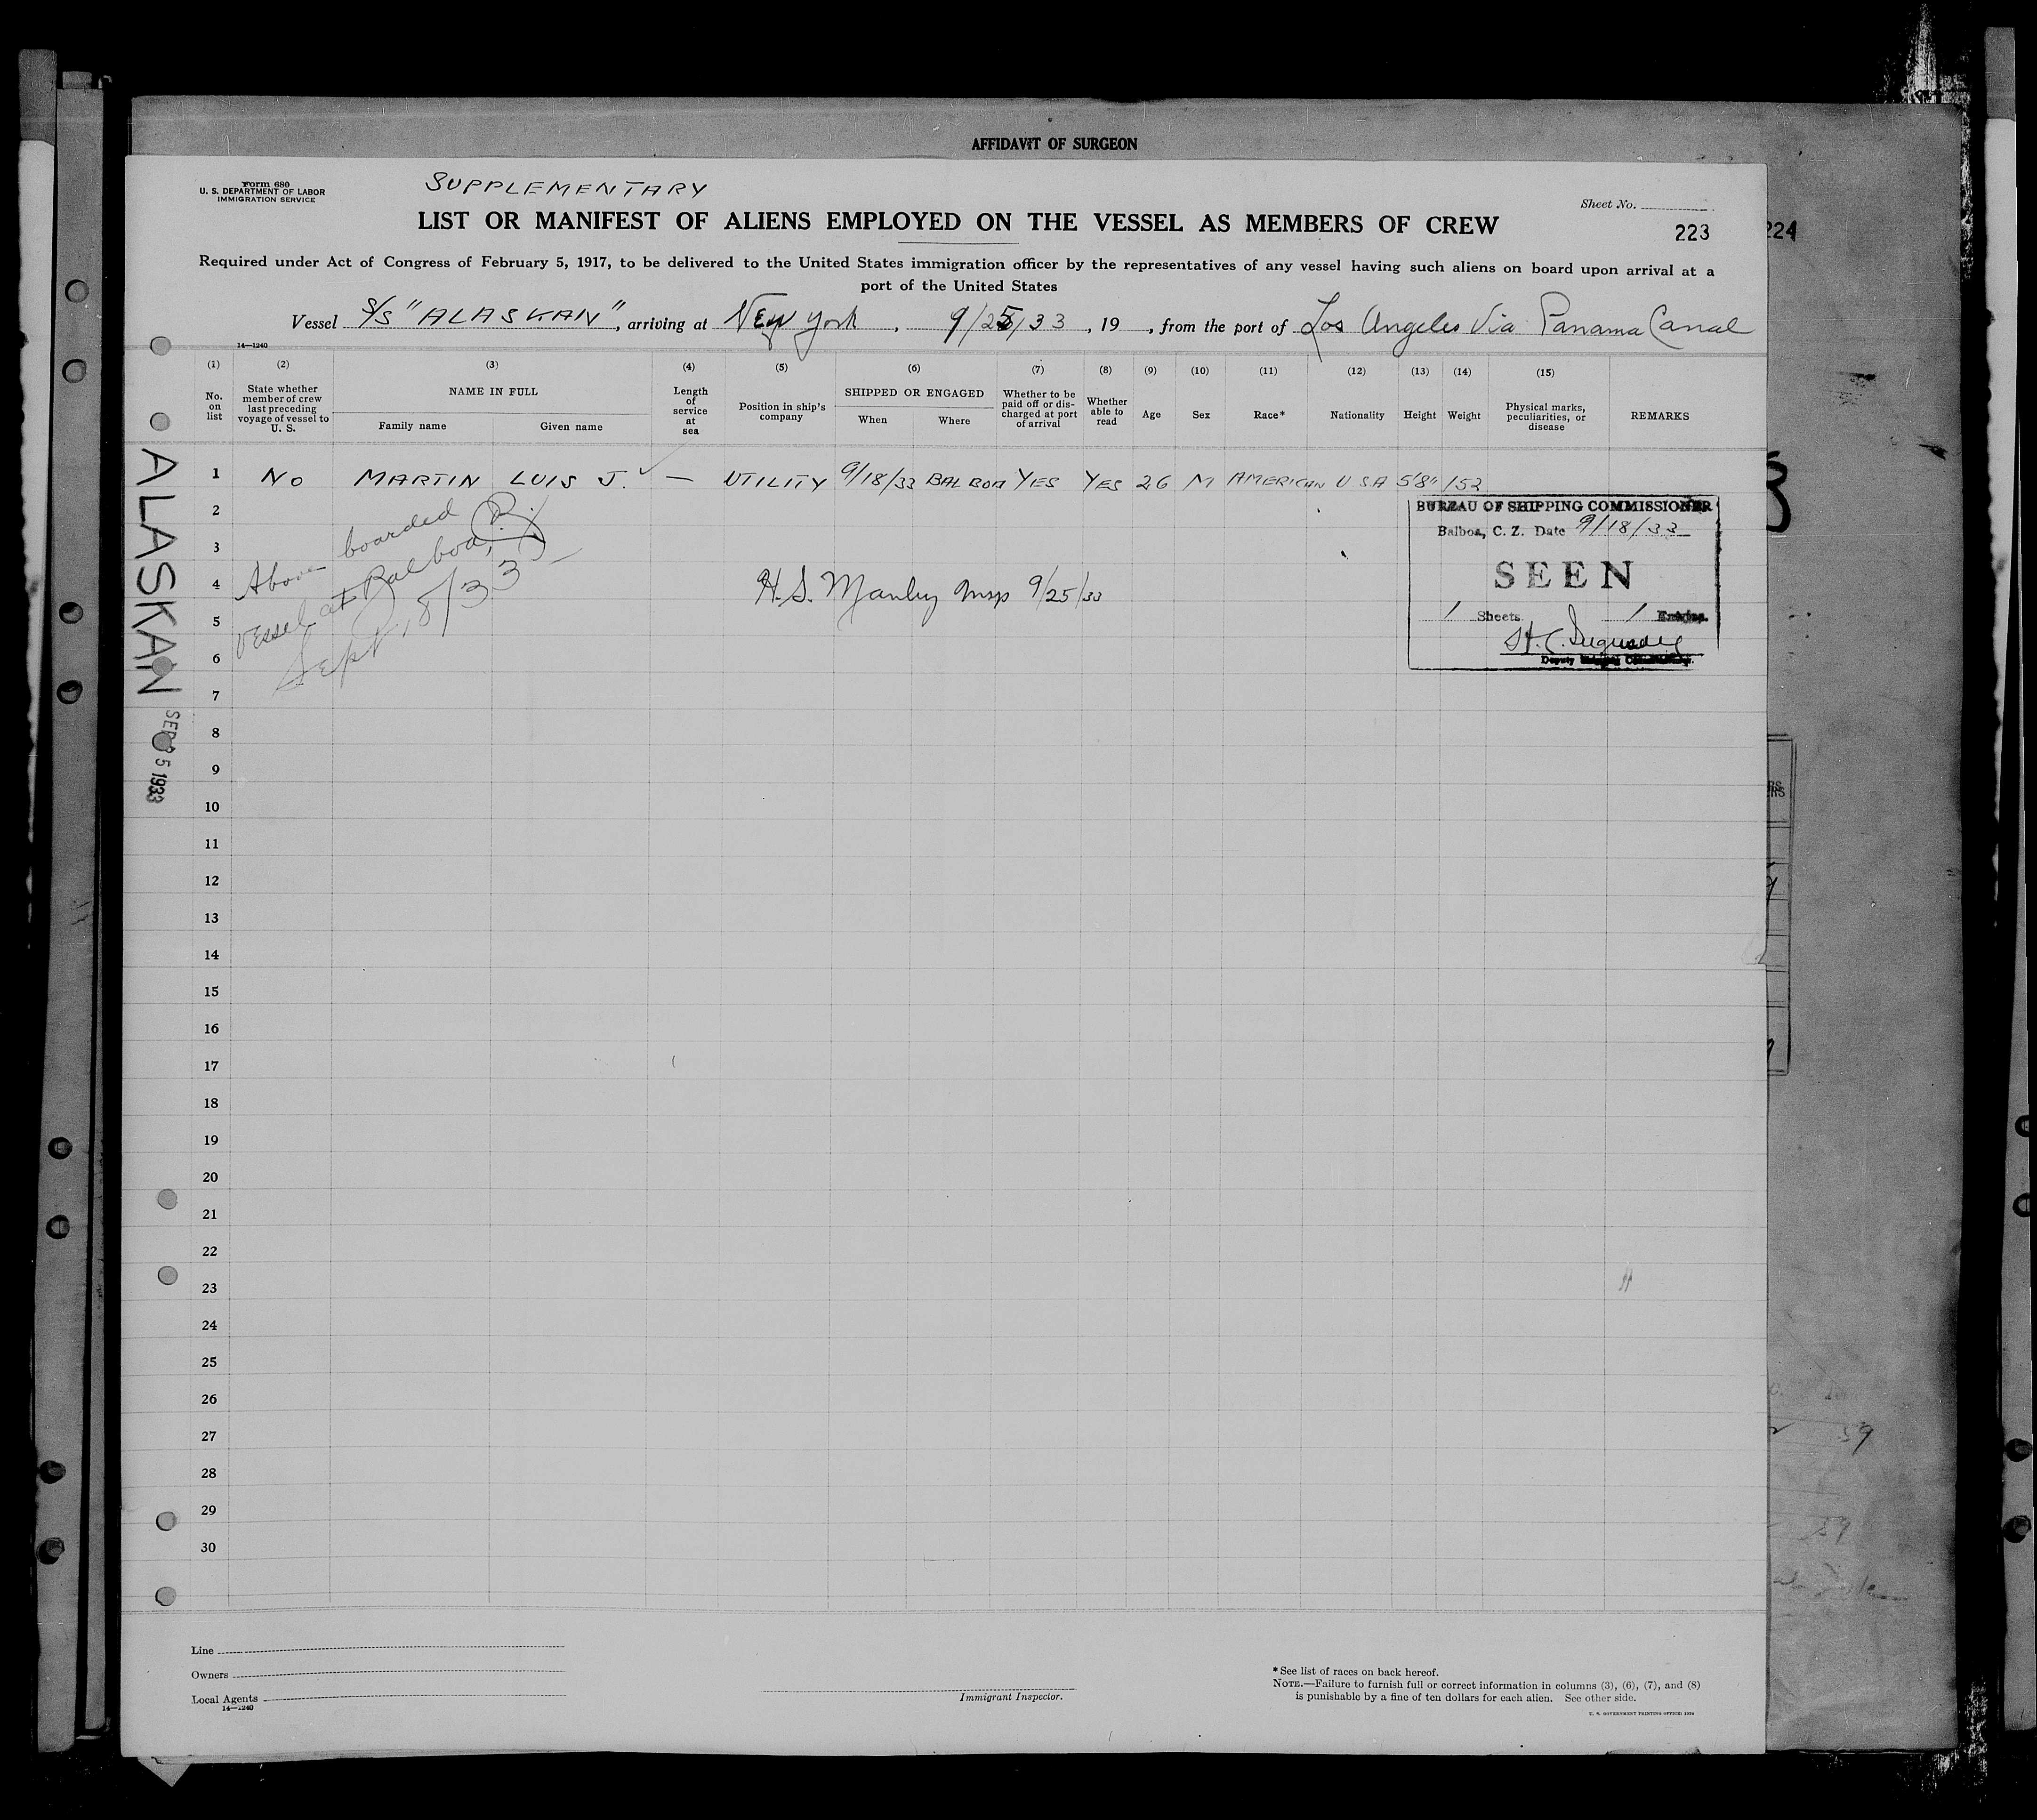 AFFIDAVIT OF SURGEON
Form 680
U. S. DEPARTMENT OF LABOR
IMMIGRATION SERVICE
SUPPLEMENTARY
Sheet No.
LIST OR MANIFEST OF ALIENS EMPLOYED ON THE VESSEL AS MEMBERS OF CREW
223
224
Required under Act of Congress of February 5, 1917, to be delivered to the United States immigration officer by the representatives of any vessel having such aliens on board upon arrival at a
port of the United States
Vessel S/S "ALASKAN", arriving at New York, 9/25/33, 19 , from the port of Los Angeles Via Panama Canal
14—1240
(1) (2) (3) (4) (5) (6) (7) (8) (9) (10) (11) (12) (13) (14) (15)
No. on list
State whether member of crew last preceding voyage of vessel to U. S.
NAME IN FULL
Family name
Given name
Length of service at sea
Position in ship's company
SHIPPED OR ENGAGED
When
Where
Whether to be paid off or discharged at port of arrival
Whether able to read
Age
Sex
Race*
Nationality
Height
Weight
Physical marks, peculiarities, or disease
REMARKS
1 NO MARTIN LUIS J. — UTILITY 9/18/33 BALBOA YES YES 26 M AMERICAN USA 5'8" 152
2
3
4
5
6
7
8
9
10
11
12
13
14
15
16
17
18
19
20
21
22
23
24
25
26
27
28
29
30
Above boarded
vessel at Balboa,
Sept. 18/33
H. S. Manley Insp 9/25/33
BUREAU OF SHIPPING COMMISSIONER
Balboa, C. Z. Date 9/18/33
SEEN
1 Sheets 1 Entries.
Deputy Shipping Commissioner.
ALASKAN
SEP 25 1933
Line
Owners
Local Agents
14—1240
Immigrant Inspector.
*See list of races on back hereof.
NOTE.—Failure to furnish full or correct information in columns (3), (6), (7), and (8)
is punishable by a fine of ten dollars for each alien. See other side.
59
59